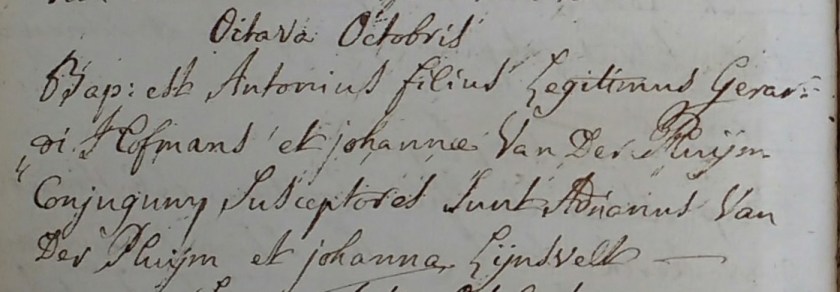 Octava Octobris
Bap: est Antonius filius Legitimus Gerar=
di Hofmans et johannæ Van Der Pluijm
Conjugum Susceptores Sunt Adrianus Van
Der Pluijm et johanna Lijnsvelt —